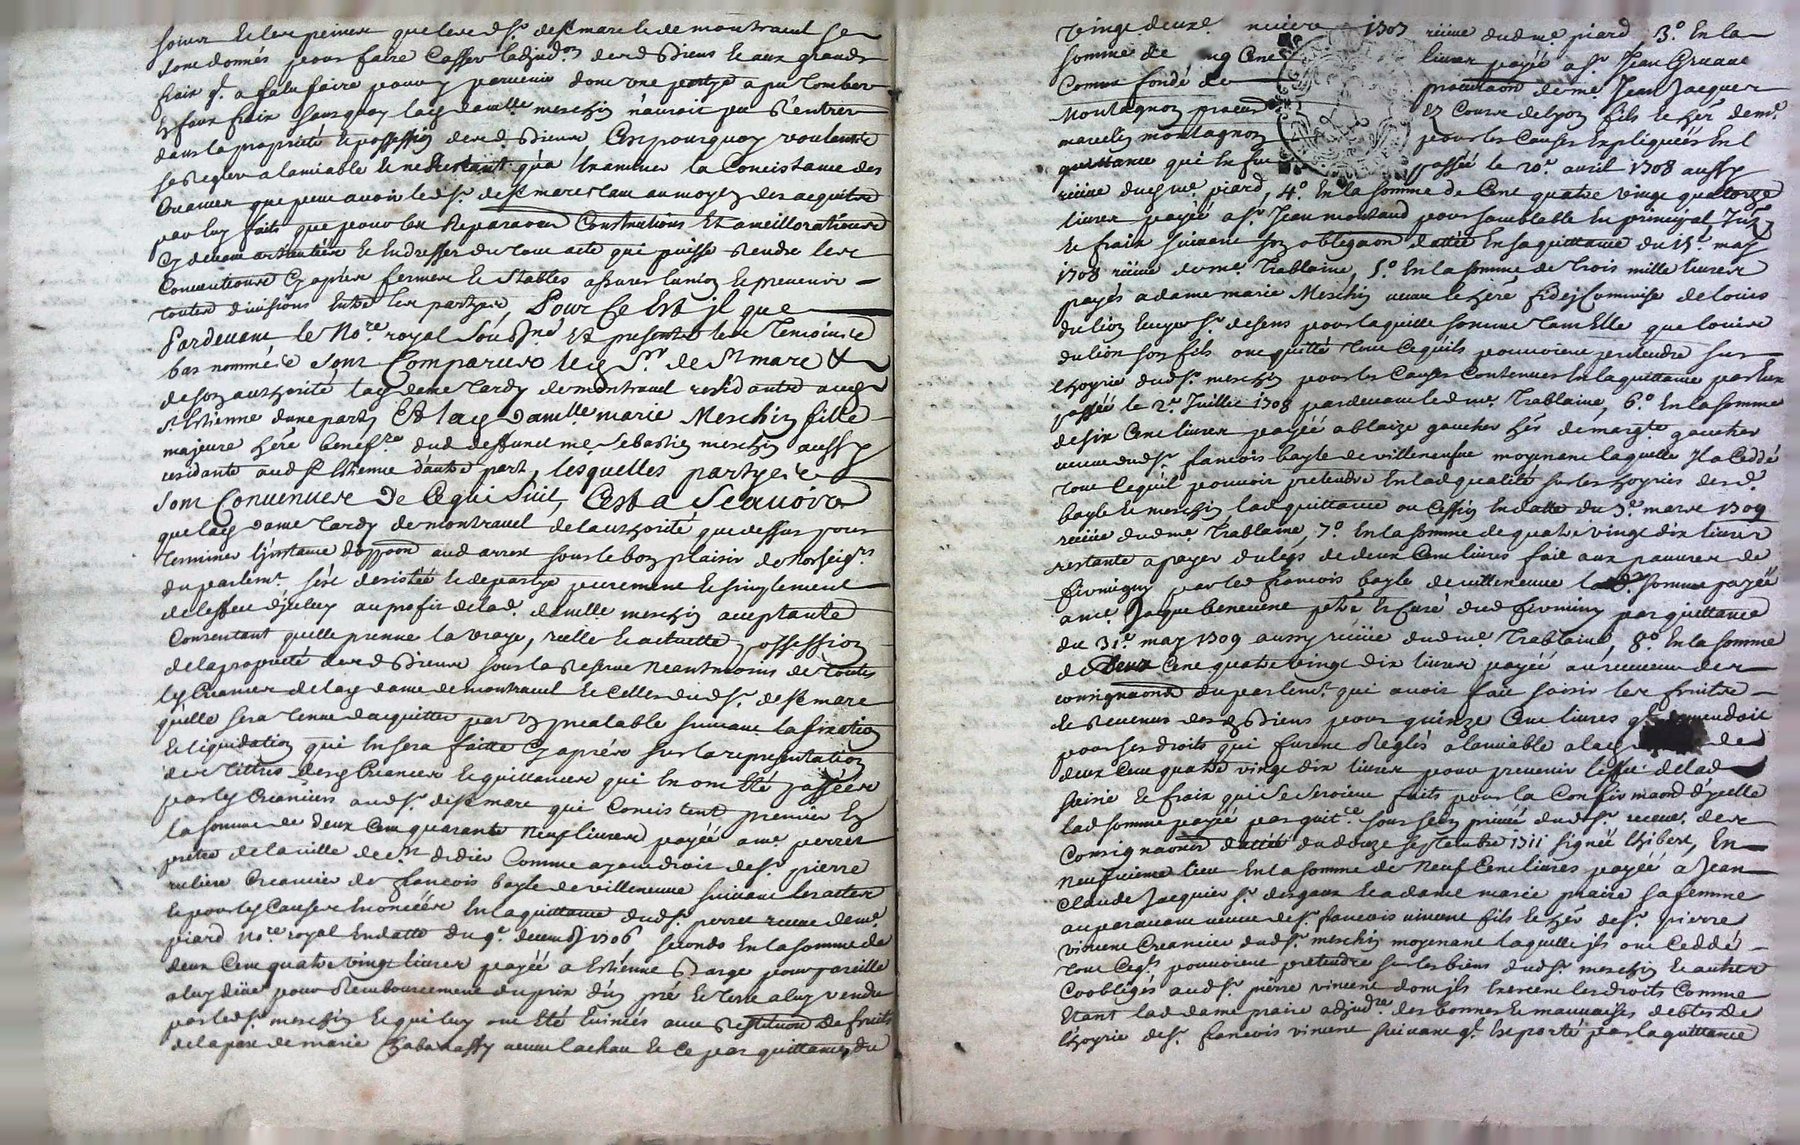 soins et les peines que lesd sr. de st marc et de montravel se
sont donnés pour faire casser ladjudon desd biens et aux grands
frais ql. a falu faire pour y parvenir dont une partye a pu tomber
en faux frais sans quoy lad damlle meschin nauroit pu rentrer
dans la proprieté et possession desd biens Cest pourquoy voulants
se regler a lamiable et ne restant qua examiner la Concistance des
creances que peut avoir led sr. de st marc tant au moyen des acquits
par luy faits que pour les Reparaons Constructions Et ameilloraons
cy devant et en dresser du tout acte qui puisse rendre les
Conventions cy apres fermes et stables assurer lunion et prevenir
toutes divisions entre les partyes, Pour Ce Est il que
Pardevant le Nore. royal sousné. Et presents les Temoins
bas nommés sont Comparus led sr. de st marc &
de son authorité lad dame tardy de montravel residants aud
st Estienne dune part, Et lad Damlle marie Meschin fille
majeure here benefre. dud deffunct me. sebastien meschin aussy
residante aud st Etienne dautre part, lesquelles partyes
sont Convenues De Ce qui suit, Cest a Scavoir
que lad dame tardy de montravel de lauthorité que dessus pour
terminer linstance doppoon aud arrest sous le bon plaisir de nosseigrs
du parlemt. sest desistée et departye purement et simplement
de leffet diceluy au profit de lad. damlle meschin acceptante
Consentant quelle prenne la vraye, reelle et actuelle possession
de la proprieté desd Biens sous la Reserve neantmoins de toutes
les Creances de lad dame de montravel et celles dud sr. de st marc
quelle sera tenue dacquitter par un prealable suivant la fixation
et liquidation qui en sera faitte cy aprés sur la representation
des tittres desd Creances et quittances qui en ont été passées
par les Creanciers aud sr. de st marc qui Concistent premier en
la somme de deux Cent quarante neuf livres payée a me. perret
pretre de la ville de st didier Comme ayant droit de sr. pierre
creancier de françois bayle de villeneuve suivant les actes
et pour les Causes enoncées en la quittance dud sr. perret recue de me.
piard Nore. royal En datte du 9e. decemb 1706, secondo En la somme de
deux Cent quatre vingt livres payée a Estienne Barge pour pareille
a luy düe pour Remboursement du prix dun pré et terre a luy vendu
par led sr. meschin et qui luy ont été evincés avec restitution de fruits
de la part de marie Chabanassy veuve lachau et ce par quittance du
vingt deuxe. 1707 reçue dud me. piard, 3o. En la
somme de Cent livres payée a sr. Jean
Comme fondé de procuraon de me. Jean Jacques
Montagnon procur Et Cour de lyon fils et her de me.
marcelin montagnon pour les Causes Expliquées En l
quittance qui en fut passée le 20e. avril 1708 aussy
recüe dud me piard, 4o. En la somme de Cent quatre vingt quatorze
livres payée a sr. Jean montaud pour semblable en principal,
et frais suivant son obligaon dattée En sa quittance du 15e. may
1708 reçüe de me. Trablaine, 5o. En la somme de trois mille livres
payés a dame marie Meschin veuve et here fideiCommise de louis
du lion Ecuyer sr. de sens pour laquelle somme tant Elle que louis
du lion son fils ont quitté tout ce quils pouvoient pretendre sur
lhoyrie dud sr. meschin pour les Causes Contenues En la quittance par eux
passée le 2e. Juillet 1708 pardevant led me. Trablaine, 6o. En la somme
de six Cent livres payée a blaize gaucher her de margte. gaucher
veuve dud sr. françois bayle de villeneufve moyenant laquelle il a Ceddé
tout ce quil pouvoit pretendre En lad qualité sur les hoyries desd.
bayle et meschin lad quittance ou Cession En datte du 3e. mars 1709
recüe dud me Trablaine, 7o. En la somme de quatre vingt dix livres
restante a payer du legs de deux Cent livres fait aux pauvres de
firminy par led françois bayle de villeneuve lad. somme payée
a me. Jaque benevent pretre et Curé dud firminy par quittance
du 31e. may 1709 aussy recüe dud me. Trablaine, 8o. En la somme
de deux Cent quatre vingt dix livres payée au receveur des
consignaons du parlemt. qui avoit fait saisir les fruits
et revenus desd Biens pour quinze Cent livres ql pretendoit
pour ses droits qui furent Reglés a lamiable a lad de
deux Cent quatre vingt dix livres pour prevenir leffet de lad
saisie et frais qui se seroient faits pour la Confirmaon dycelle
lad somme payée par quitce. sous sein privé dud sr. recev. des
Consignaons dattée du douze septembre 1711 signée hibert, En
neufvieme lieu En la somme de Neuf Cent livres payée a Jean
Claude Jacquier sr. desgaux et a dame marie praire sa femme
auparavant veuve de sr. françois vincent fils et her de sr. pierre
vincent creancier dud sr. meschin moyenant laquelle ils ont Ceddé
tout Ce qls pouvoient pretendre sur les biens dud sr. meschin et autres
Coobligés aud sr. pierre vincent dont ils Exercent les droits Comme
Etant lad dame praire adjudre. des bonnes et mauvaises debtes de
lhoyrie de sr. françois vincent suivant ql. est porté par la quittance